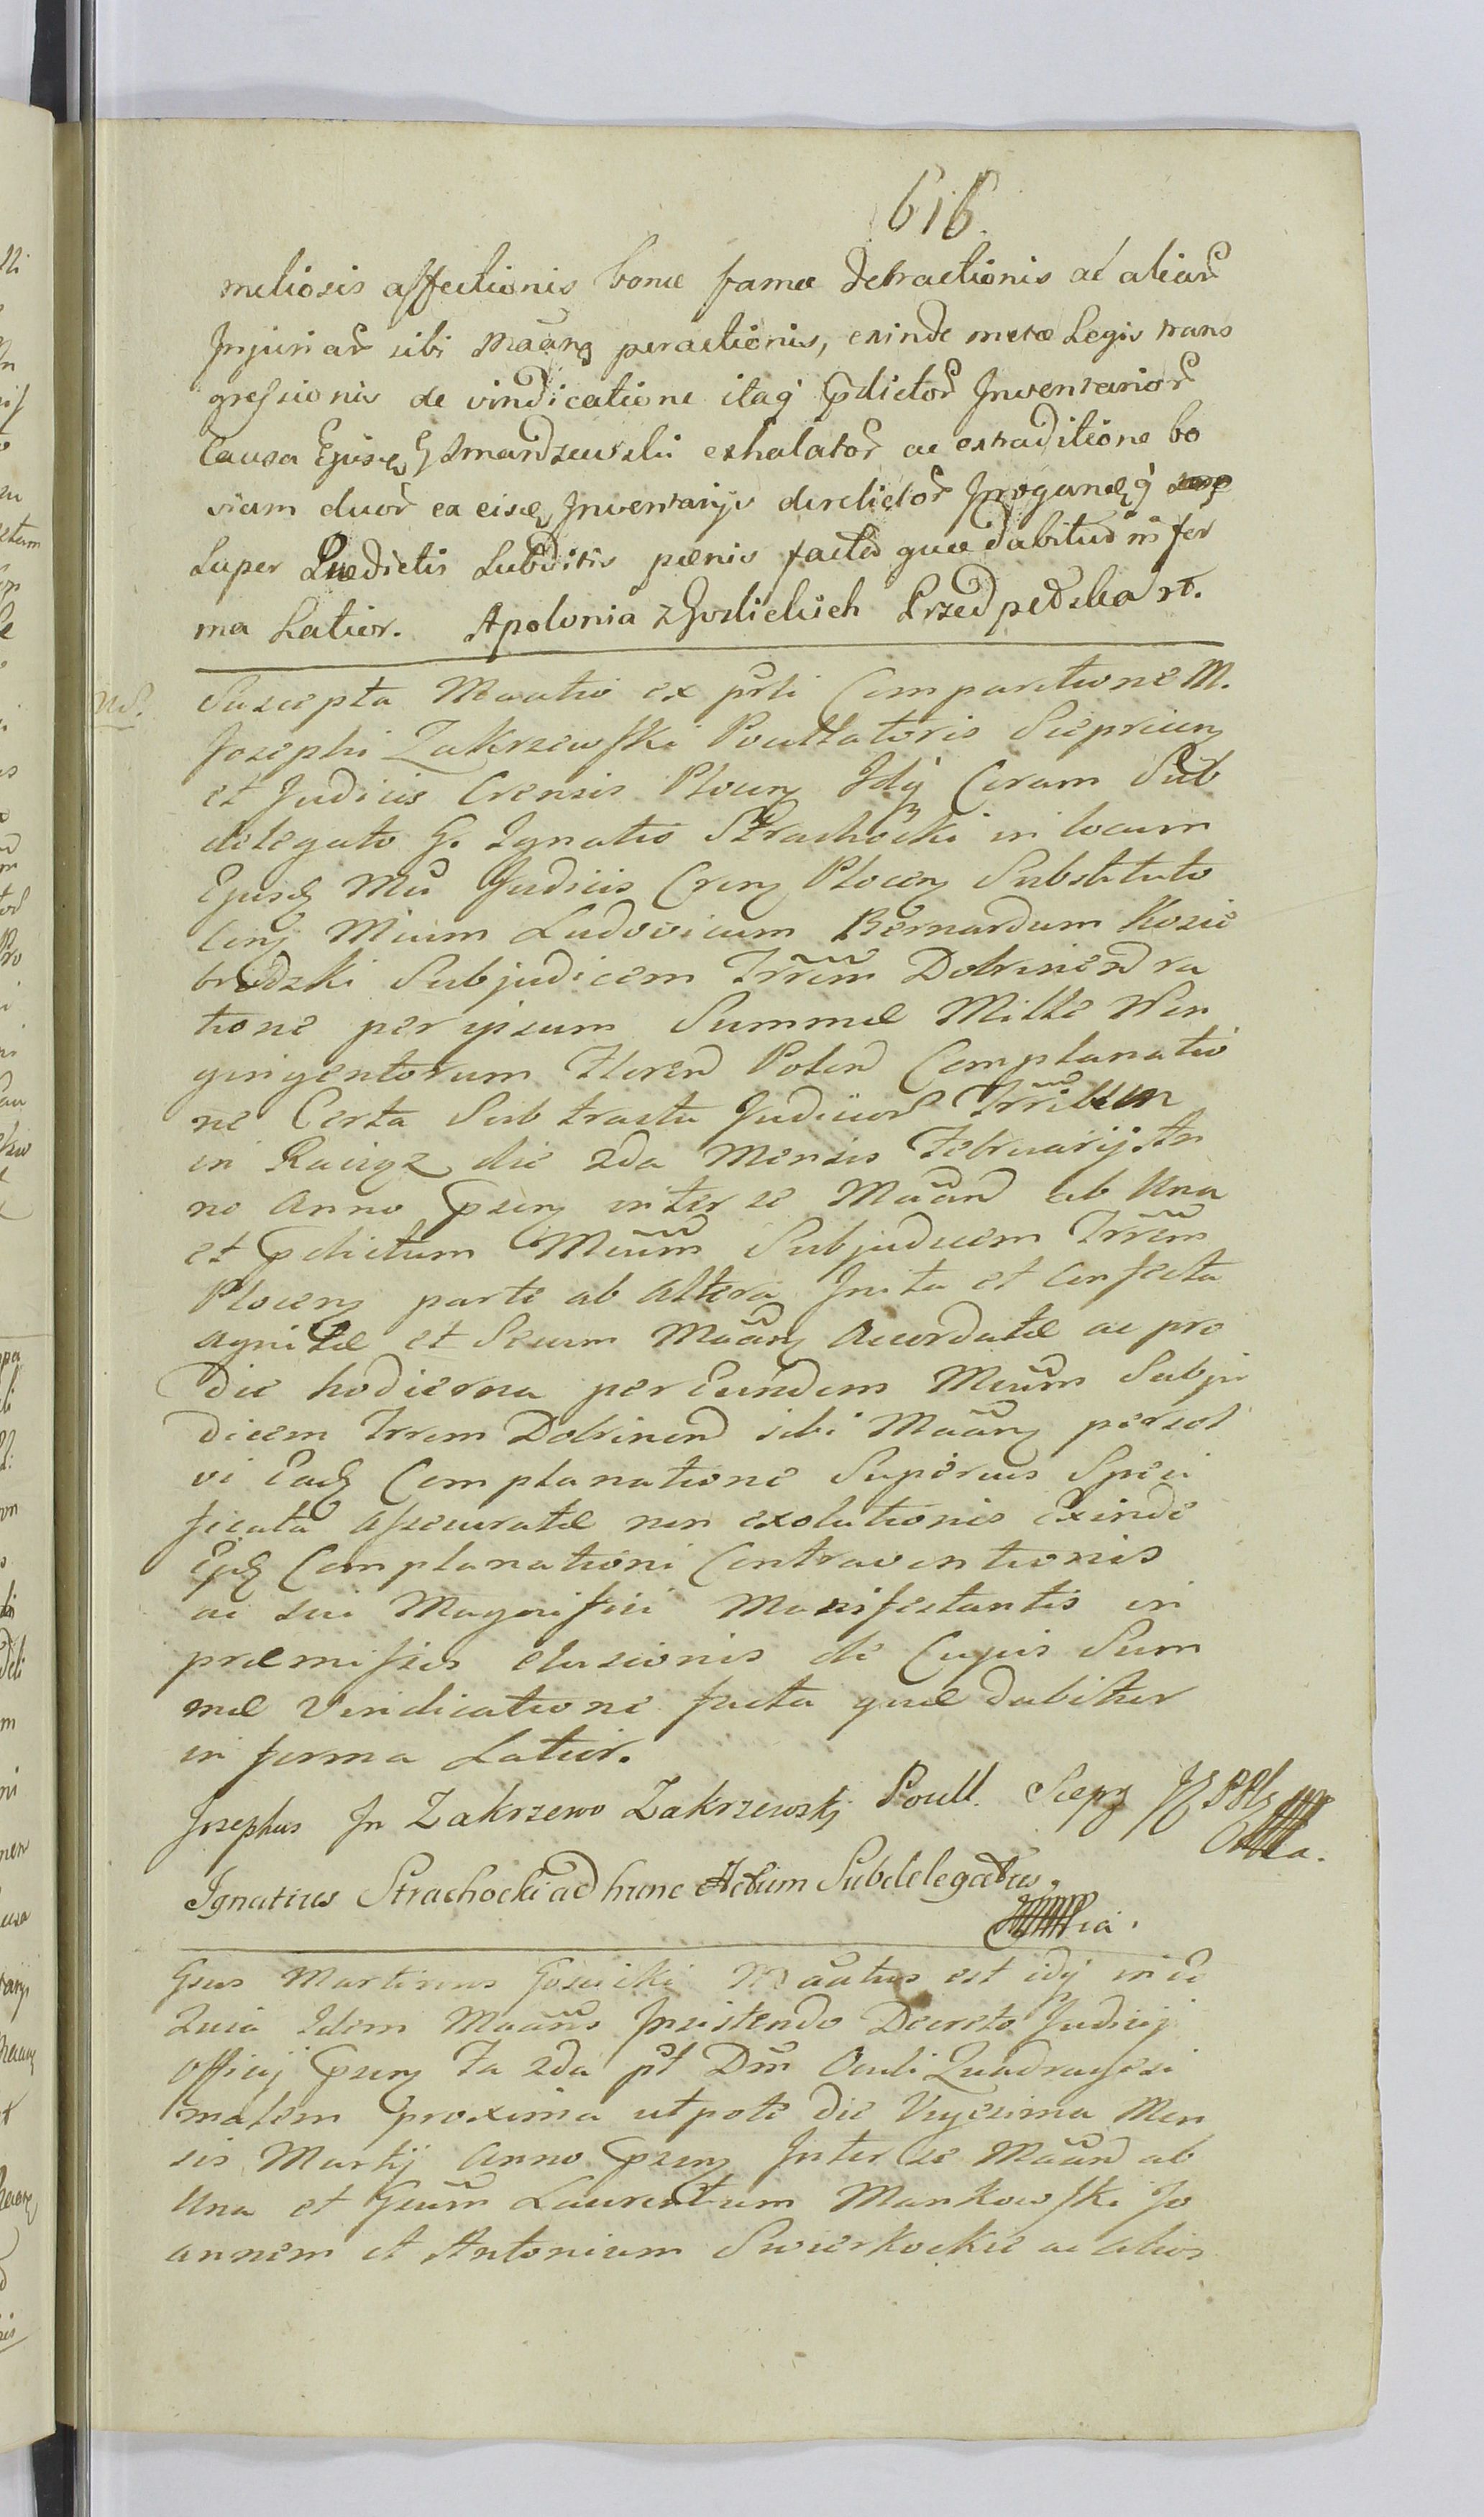 616.
meliosis affectionis bonæ famæ detractionis ac aliar
Injuriar sibi Maãng peractionis, exinde metæ Legis trans
gressionis de vindicatione itaq pdictor Inventarior
Causa Ejusd G Smardzewski exhalator ac extraditione bo
vium duor ex eisd Inventarijs derelictor
super Prædictis Subditis pænis facta quæ dabitur in for
ma Latior. Apolonia z Goslickich Przedpełska rt.
NS.
Suscepta Maatio ex psti Comparitione M.
Josephi Zakrzewski Pocillatoris Sieprcien
et Judicis Crensis Plocen Idq Coram Sub
delegato G. Ignatio Strachocki in locum
Ejusd Mci Judicis Cren Plocen Substituto
Con Mcum Ludovicum Bernardum Kozie
brodzki Subjudicem Trrem Dobrinen ra
tione per ipsum Summæ Mille Non
gingentorum Floren Polon Complanatio
ne Certa Sub tractu Judicior Trrium
in Raciąz die 2da Mensis Februarij An
no Anno Psen inter se Maan ab Una
et pdictum Mcum Subjudicem Trrem
Plocen parte ab altera Inita et Confecta
agnitæ et Secum Maang Acordatæ ac pro
die hodierna per Eundem Mcum Subju
dicem Trrem Dobrinen sibi Maang persol
vi Ead Complanatione Superius Speci
ficata assecuratæ non exolutionis Exinde
Ejd Complanationi Contraventionis
ac sui Magnifici Manifestantis in
præmissis elusionis de Cujus Sum
mæ Vindicatione facta quæ dabitur
in forma Latior.
Josephus In Zakrzewo Zakrzewski Pocill. Siepr
Ignatius Strachocki ad hunc Actum Subdelegatus
Gsus Martinus Gosicki Maatus est idq in eo
Quia Idem Maans Insistendo Decreto Judicij
Officij Psen Fa 2da pt Dm Oculi Quadragesi
malem proxima utpote die Vigesima Men
sis Martij Anno Psen Inter se Maan ab
Una et Gsum Laurentum Mankowski Jo
annem et Antonium Swierkockie ac alios